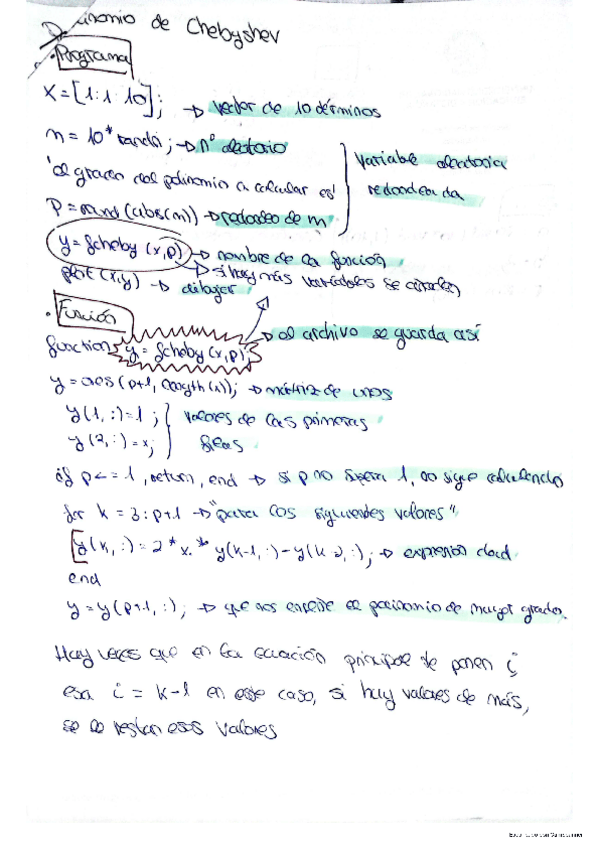 Polinomio de Chebyshev
· Programa
x = [1:1:10]; → vector de 10 términos
n = 10*randn; → nº aleatorio
'el grado del polinomio a calcular es'
variable aleatoria
redondeada
P = round(abs(n)) → redondeo de n
y = fcheby(x,p) → nombre de la función
→ si hay más variables se añaden
plot(x,y) → dibujar
· Función
→ el archivo se guarda así
function y = fcheby(x,p)
y = ones(p+1, length(x)); → matriz de unos
y(1,:)=1;
y(2,:)=x;
valores de las primeras
filas
if p<=1, return, end → si p no supera 1, no sigue calculando
for k = 3:p+1 → "para los siguientes valores"
y(k,:) = 2*x.*y(k-1,:)-y(k-2,:); → expresión dad
end
y = y(p+1,:); → que nos enseñe el polinomio de mayor grado.
Hay veces que en la ecuación principal te ponen i
esa i = k-1 en este caso, si hay valores de más,
se le restan esos valores